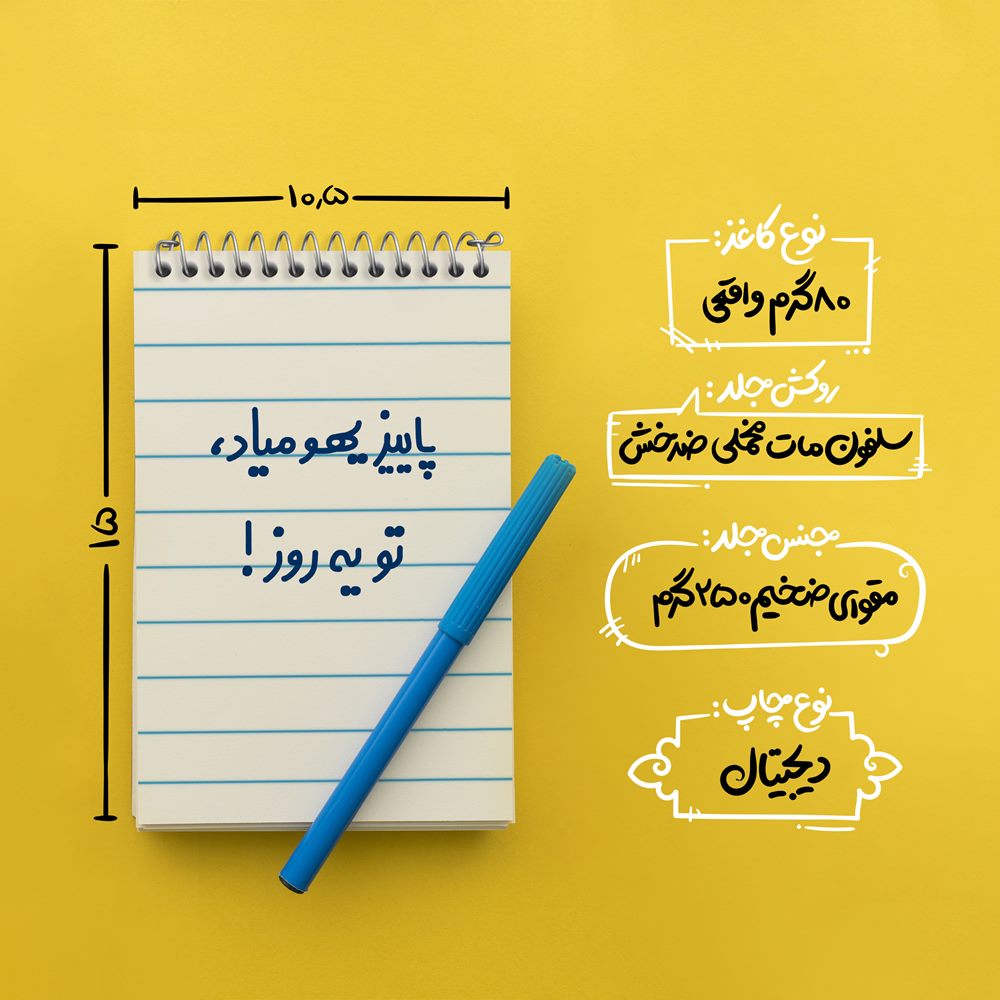 ۱۰٫۵
۱۵
پاییز یهو میاد،
تو یه روز!
نوع کاغذ:
۸۰ گرم واقعی
روکش جلد:
سلفون مات مخملی ضدخش
جنس جلد:
مقوای ضخیم ۲۵۰ گرم
نوع چاپ:
دیجیتال